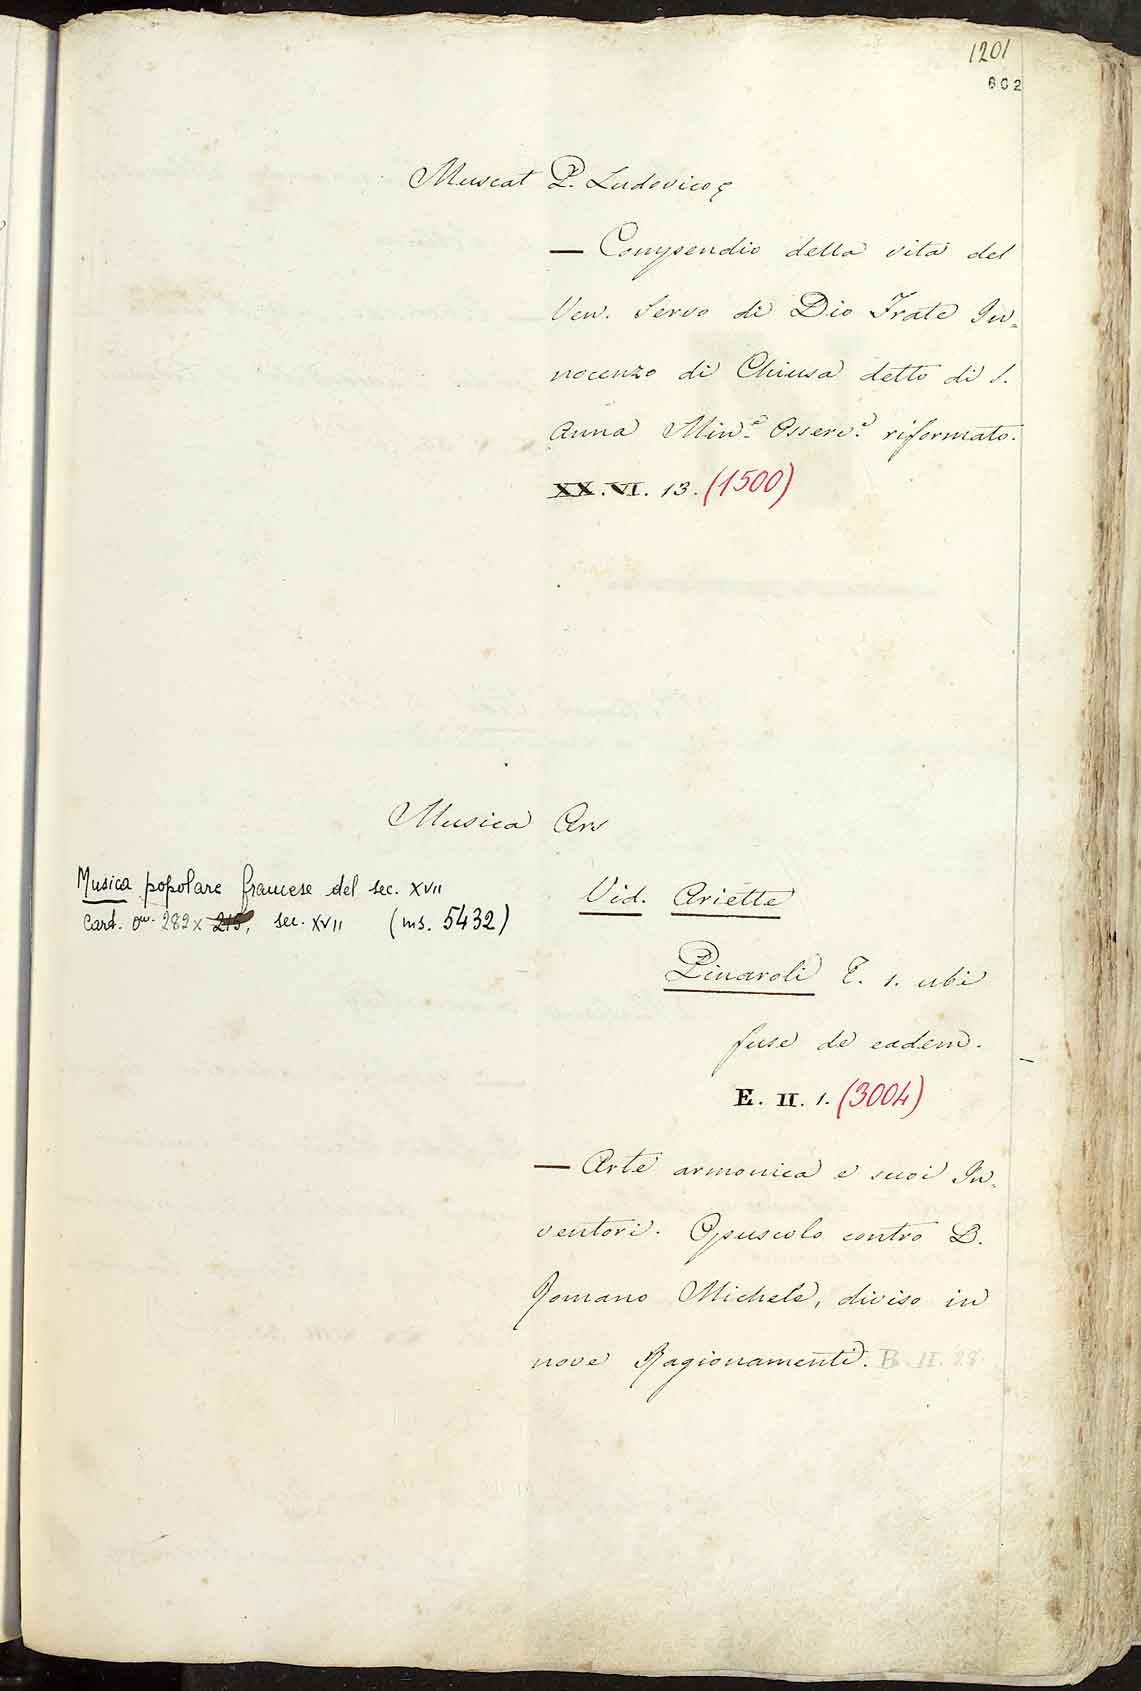 1201
602
Muscat P. Ludovico
— Compendio della vita del
Ven. Servo di Dio Frate In=
nocenzo di Chiusa detto di S.
Anna Min.e Osserv.e riformato.
XX. VI. 13. (1500)
Musica Ars
Musica popolare francese del sec. XVII
Cart. 282 x 215, sec. XVII (ms. 5432)
Vid. Ariette
Pinaroli T. 1. ubi
fuse de eadem.
E. II. 1. (3004)
— Arte armonica e suoi In=
ventori. Opuscolo contro D.
Romano Michele, diviso in
nove Ragionamenti. B. II. 28.